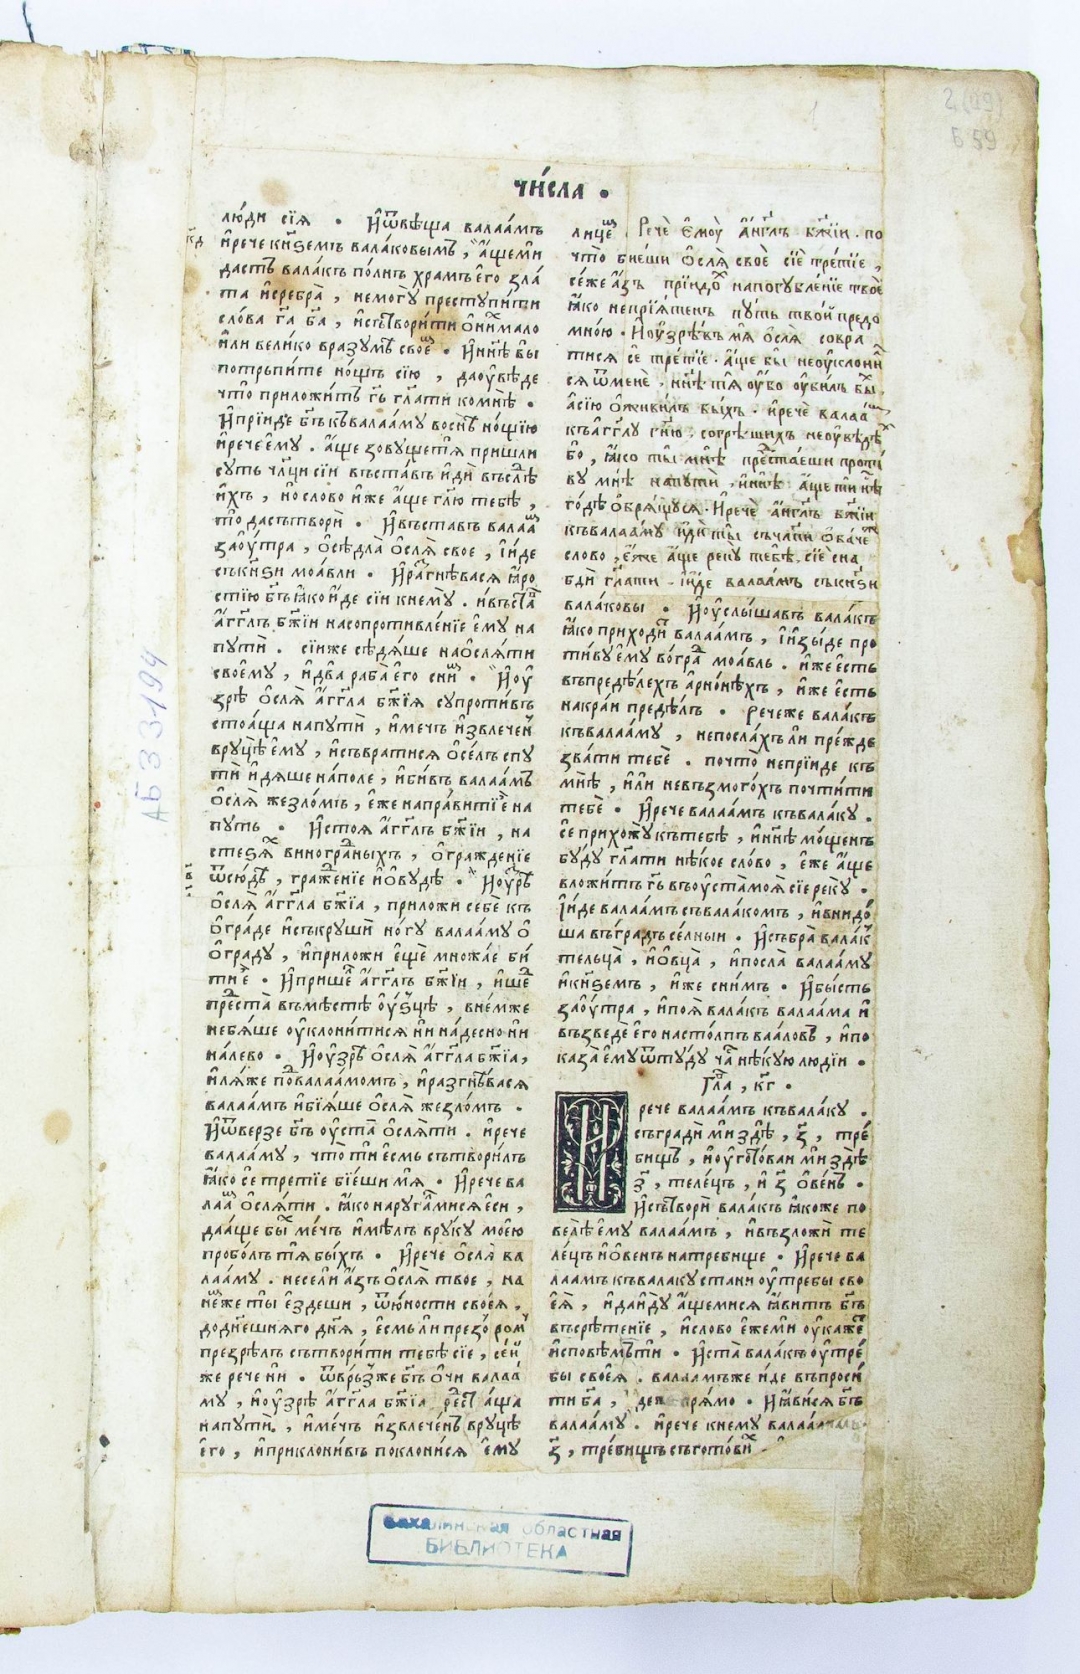 числа .
люди сїѧ . Иѿвѣща валаамъ
ирече кнѕемъ валаковымъ, аще ми
дастъ валакъ полнъ храмъ его зла
та исребра, немогу преступити
слова га ба, исътворити е мало
или велико вразумѣ своеⷨ . Инн҃ѣ вы
потръпите нощъ сїю, даоувѣде
что приложитъ гь гл҃ати комнѣ .
Иприиде бг҃ъ къвалааму восиѣ нощїю
ирече ему . аще зовущетѧ пришли
суть чл҃ци сїи въставъ иди въслѣⷣ
ихъ, но слово иже аще гл҃ю тебѣ,
то дасътвори . Ивъставъ валааⷨ
заоутра, осѣдла ослѧ свое, ииде
съкнѕи моавли . Иразгнѣвасѧ ꙗро
стїю бг҃ъ ꙗко иде сїи книему . ивъста
агг҃лъ бж҃їи насопротивленїе ему на
пути . сїиже сѣдѧше наослѧти
своему, идва раба его сниⷨ . Иоу
зрѣ ослѧ агг҃ла бж҃їѧ супротивъ
стоаща напути, имечъ извлеченъ
вруцѣ ему, исъвратисѧ оселъ спу
ти идѧше наполе, ибивъ валаамъ
ослѧ жезломъ, еже направити е на
путь . Истоѧ агг҃лъ бж҃їи, на
стеѕѧⷯ виноградныхъ, огражденїе
ѿсюдъ, гражⷣенїе иовудѣ . Иоузрѣ
ослѧ агг҃ла бж҃їа, приложи себе къ
ограде исъкруши ногу валааму о
ограду, иприложи еще множае би
ти е . Ипришеⷣ агг҃лъ бж҃їи, ишеⷣ
преста въмѣстѣ оуѕцѣ, внемже
небѧше оуклонитисѧ ни надесно ни
налево . Иоузрѣ ослѧ агг҃ла бж҃їа,
илѧже подвалаамомъ, иразгнѣвасѧ
валаамъ ибїѧше ослѧ жезломъ .
Иѿверзе бг҃ъ оуста ослѧти . ирече
валааму, что ти есмь сътворилъ
ꙗко се третїе бїеши мѧ . Ирече ва
лааⷨ ослѧти . ꙗко наругамисѧ еси,
дааще быⷯ мечъ имѣлъ вруку моею
проболъ тѧ быхъ . Ирече ослѧ ва
лааму . несели азъ ослѧ твое, на
неⷨже ты ездеши, ѿюности своеѧ,
додн҃ешнѧго дн҃ѧ, есмь ли презоромъ
презрѣлъ сътворити тебѣ сїе, сеи
же рече ни . ѿврьзже бг҃ъ очи валаа
му, иоузрѣ агг҃ла бж҃їа стоаща
напути, имечъ извлеченъ вруцѣ
его, иприклонивъ поклонисѧ ему
лицеⷨ . Рече ему анг҃лъ бж҃їи . по
что биеши ослѧ свое сїе третїе,
сеже азъ прїидоⷯ напогубленїе твое
ꙗко непрїѧтенъ путь твои предо
мною . Иоузрѣвъ мѧ ослѧ совра
тисѧ се третїе . аще бы неоуклони
сѧ ѿмене, нн҃ѣ тѧ оубо оубилъ быⷯ
асїю оживилъ быхъ . ирече валааⷨ
къагг҃лу гн҃ю . согрѣшихъ неоувѣдѣⷯ
бо, ꙗко ты мнѣ престаеши проти
ву мнѣ напути, инн҃ѣ аще ти нѣ
годѣ обрѧщусѧ . Ирече анг҃лъ бж҃їи
къвалааму иди ты съчлки обаче
слово, еже аще реку тебѣ, сїе сна
бди гл҃ати . ииде валаамъ съкнѕи
валаковы . Иоуслышавъ валакъ
ꙗко приходиⷮ валаамъ, иизыде про
тиву ему воградⷣ моавль . иже есть
въпредѣлехъ арнонѣхъ, иже есть
накраи предѣлъ . Речеже валакъ
къвалааму, непослахъ ли прежде
звати тебе . почто неприиде къ
мнѣ, или невъзмогохъ почтити
тебе . Ирече валаамъ къвалаку .
се прихожу къ тебѣ, инн҃ѣ мощенъ
буду гл҃ати нѣкое слово, еже аще
вложитъ гь въоустамоѧ сїе реку .
Ииде валаамъ съвалакомъ, ивнидо
ша въградъ селныи . Исъбра валакъ
тельца, иовца, ипосла валааму
икнѕемъ, иже снимъ . Ибысть
заоутра, ипоѧ валакъ валаама и
възведе его настолпъ вааловъ, ипо
каза ему ѿтуду чаⷭ нѣкую людїи .
Глⷡа, кг .
Ирече валаамъ къвалаку .
съгради ми здѣ, з, тре
бищъ, иоуготоваи ми здѣ
з, телецъ, и з овенъ .
Исътвори валакъ ꙗкоже по
велѣ ему валаамъ, ивъзложи те
лецъ иовенъ натребище . Ирече ва
лаамъ къвалаку стани оу требы сво
еѧ, идаиду ащемисѧ ꙗвитъ бг҃ъ
въсрѣтенїе, ислово ежеми оукажеⷮ
исповѣмъти . Иста валакъ оутре
бы своеѧ . валаамъже иде въпроси
ти ба, прѧмо . Иꙗвисѧ бг҃ъ
валааму . ирече книему валаамъ .
з, требищъ съготовиⷯ .
кд
АБ 33194
2(09)
Б 59
1
Сахалинская областная
БИБЛИОТЕКА